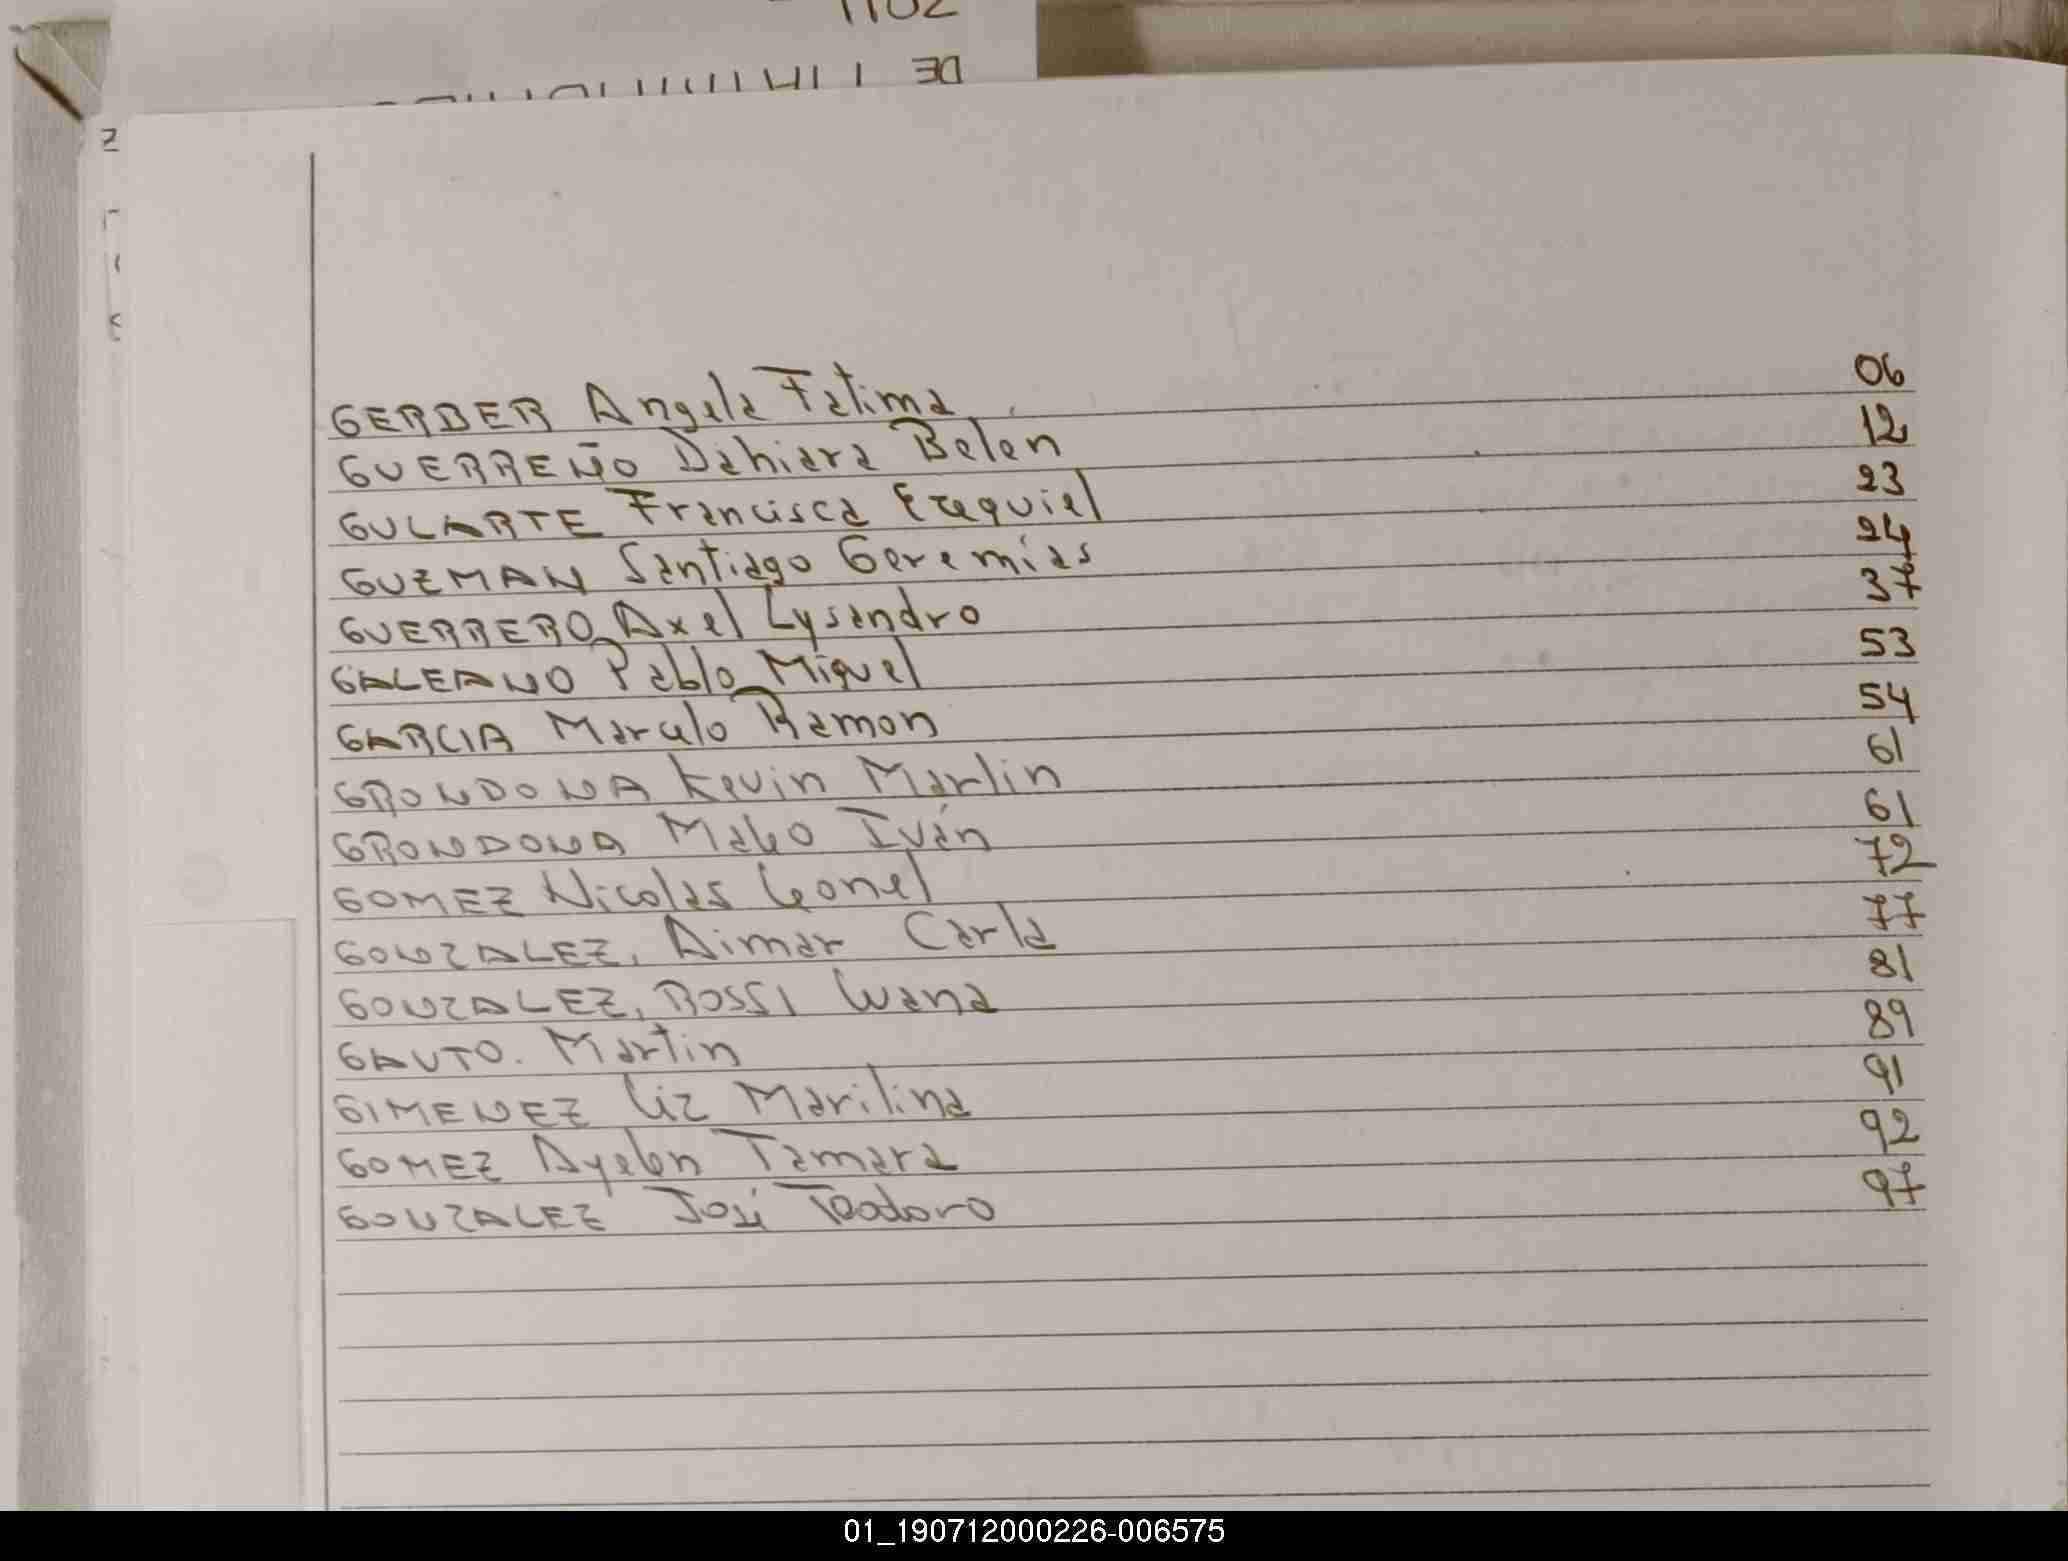 GERBER Angela Fatima 06
GUERREÑO Dahiara Belen 12
GULARTE Francisca Ezequiel 23
GUZMAN Santiago Geremías 24
GUERRERO Axel Lysandro 37
GALEANO Pablo Miguel 53
GARCIA Marcelo Ramon 54
GRONDONA Kevin Marlin 61
GRONDONA Iván 61
GOMEZ Nicolas Leonel 72
GONZALEZ, Aimar Carla 77
GONZALEZ, ROSSI Luana 81
GAUTO. Martin 89
GIMENEZ Liz Marilina 91
GOMEZ Ayelen Tamara 92
GONZALEZ José Teodoro 97
01_190712000226-006575